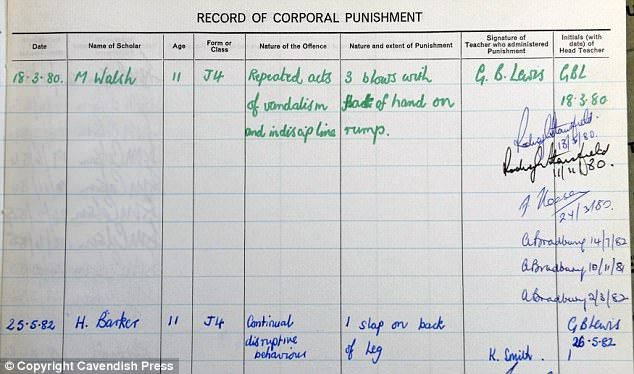 RECORD OF CORPORAL PUNISHMENT
Date Name of Scholar Age Form or Class Nature of the Offence Nature and extent of Punishment Signature of Teacher who administered Punishment Initials (with date) of Head Teacher
18.3.80. M Walsh 11 J4 Repeated acts 3 blows with G. B. Lewis GBL
of vandalism of hand on 18.3.80
and indiscipline rump.
18/3/80.
11/11/80
24/3/80.
A Bradbury 14/7/82
A Bradbury 10/11/81
A Bradbury 2/3/82
25.5.82 H. Barker 11 J4 Continual 1 slap on back GB Lewis
disruptive of leg 26.5.82
behaviour K. Smith.
© Copyright Cavendish Press